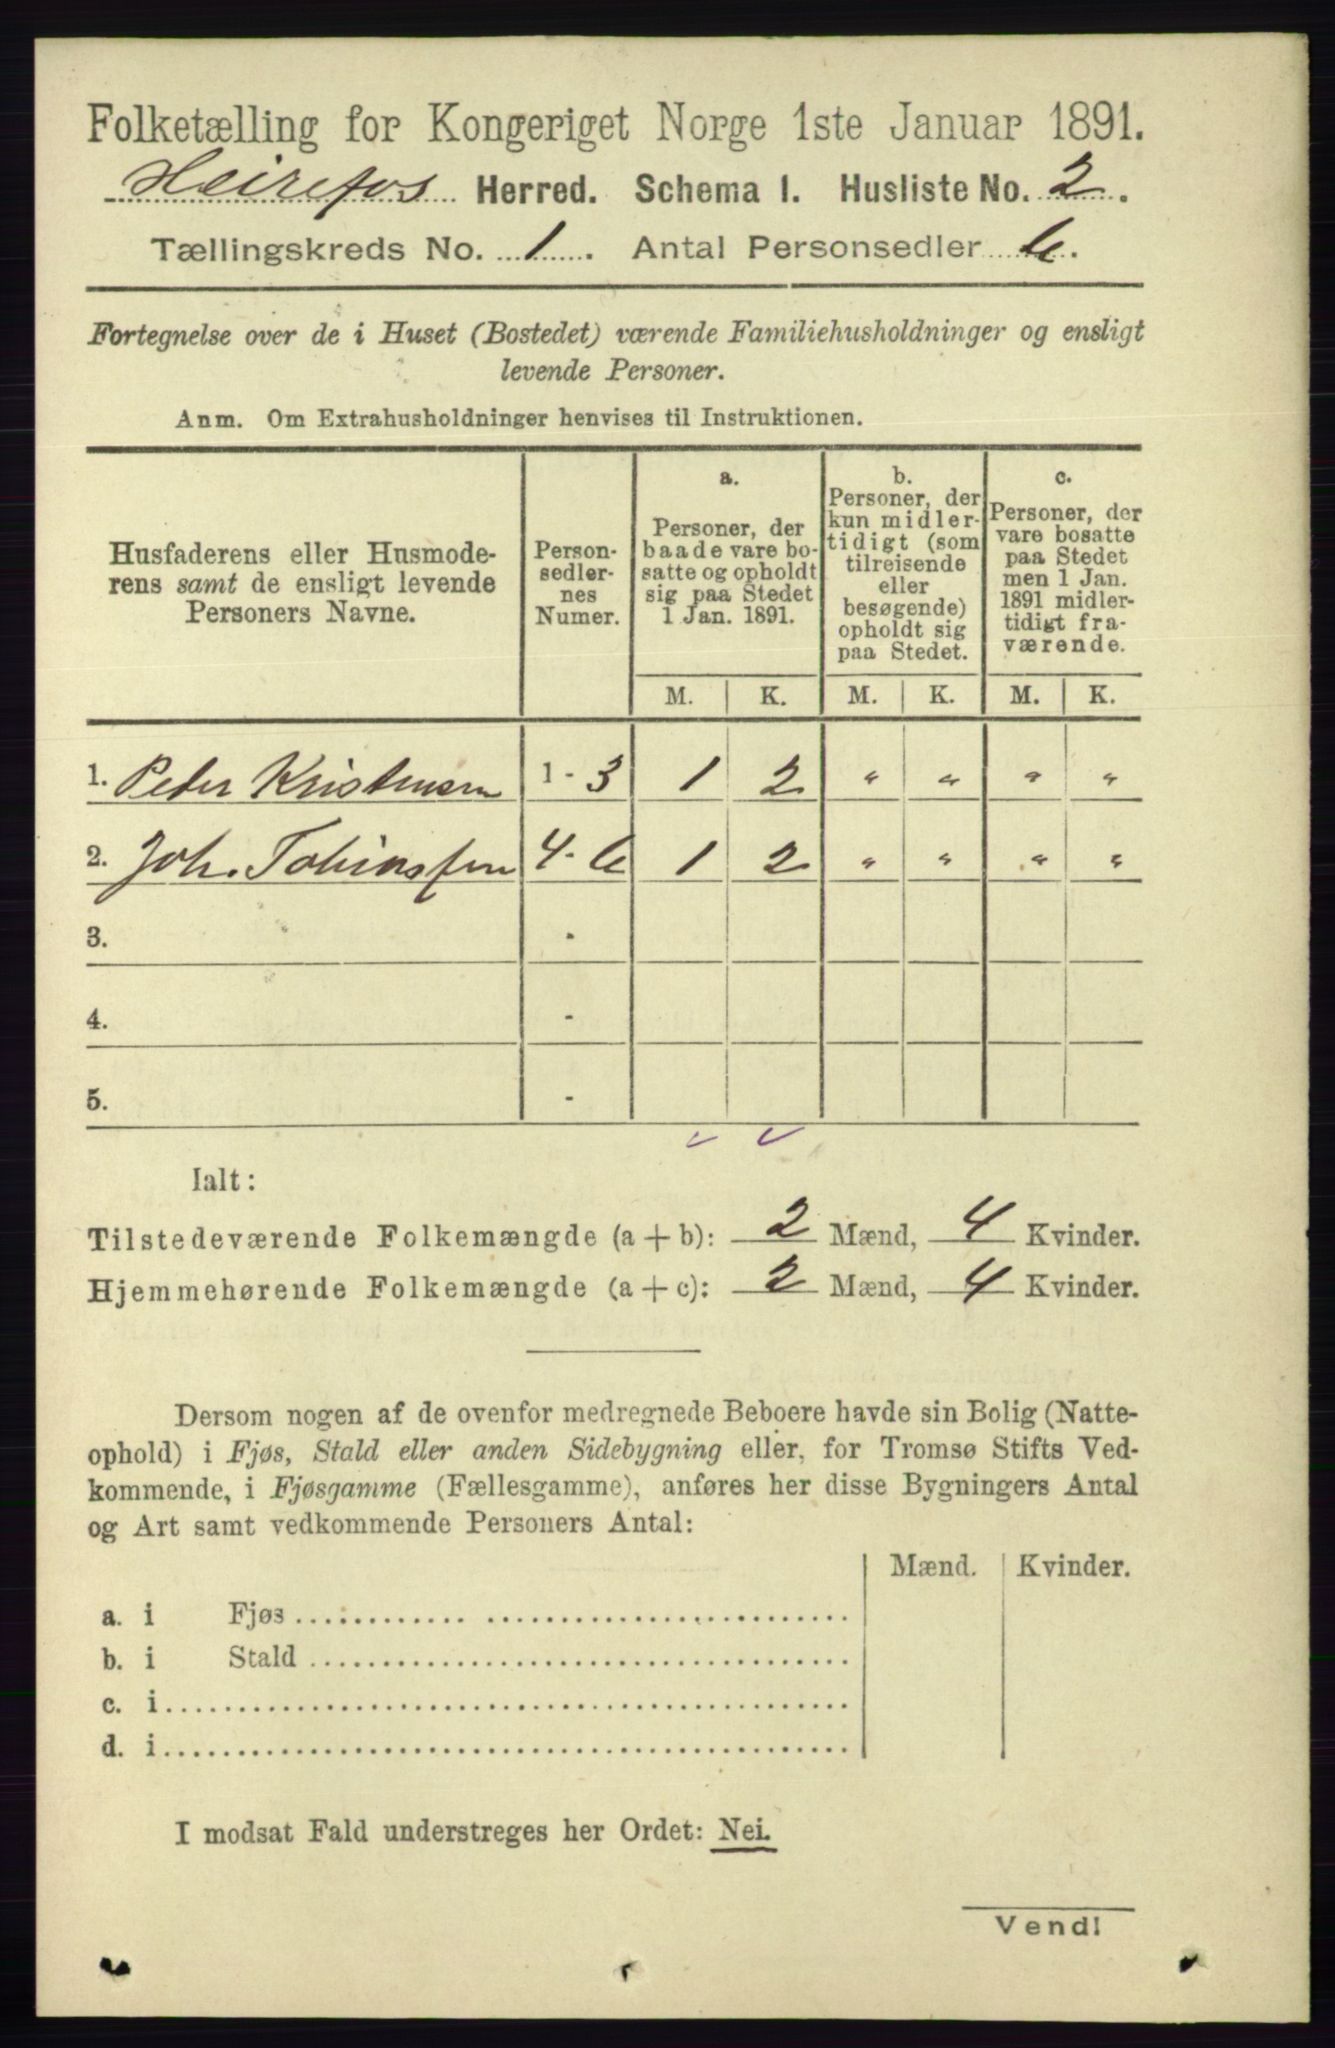 Folketælling for Kongeriget Norge 1ste Januar 1891.
Heirefos Herred. Schema I. Husliste No. 2.
Tællingskreds No. 1. Antal Personsedler 6.
Fortegnelse over de i Huset (Bostedet) værende Familiehusholdninger og ensligt
levende Personer.
Anm. Om Extrahusholdninger henvises til Instruktionen.
Husfaderens eller Husmode-
rens samt de ensligt levende
Personers Navne.
Person-
sedler-
nes
Numer.
a.
Personer, der
baade vare bo-
satte og opholdt
sig paa Stedet
1 Jan. 1891.
b.
Personer, der
kun midler-
tidigt (som
tilreisende
eller
besøgende)
opholdt sig
paa Stedet.
c.
Personer, der
vare bosatte
paa Stedet
men 1 Jan.
1891 midler-
tidigt fra-
værende.
M. K. M. K. M. K.
1. Peder Kristensen 1 - 3 1 2 " " " "
2. Joh. Tobiassen 4 - 6 1 2 " " " "
3. -
4. -
5. -
Ialt:
Tilstedeværende Folkemængde (a + b): 2 Mænd, 4 Kvinder.
Hjemmehørende Folkemængde (a + c): 2 Mænd, 4 Kvinder.
Dersom nogen af de ovenfor medregnede Beboere havde sin Bolig (Natte-
ophold) i Fjøs, Stald eller anden Sidebygning eller, for Tromsø Stifts Ved-
kommende, i Fjøsgamme (Fællesgamme), anføres her disse Bygningers Antal
og Art samt vedkommende Personers Antal:
Mænd. Kvinder.
a. i Fjøs
b. i Stald
c. i
d. i
I modsat Fald understreges her Ordet: Nei.
Vend!